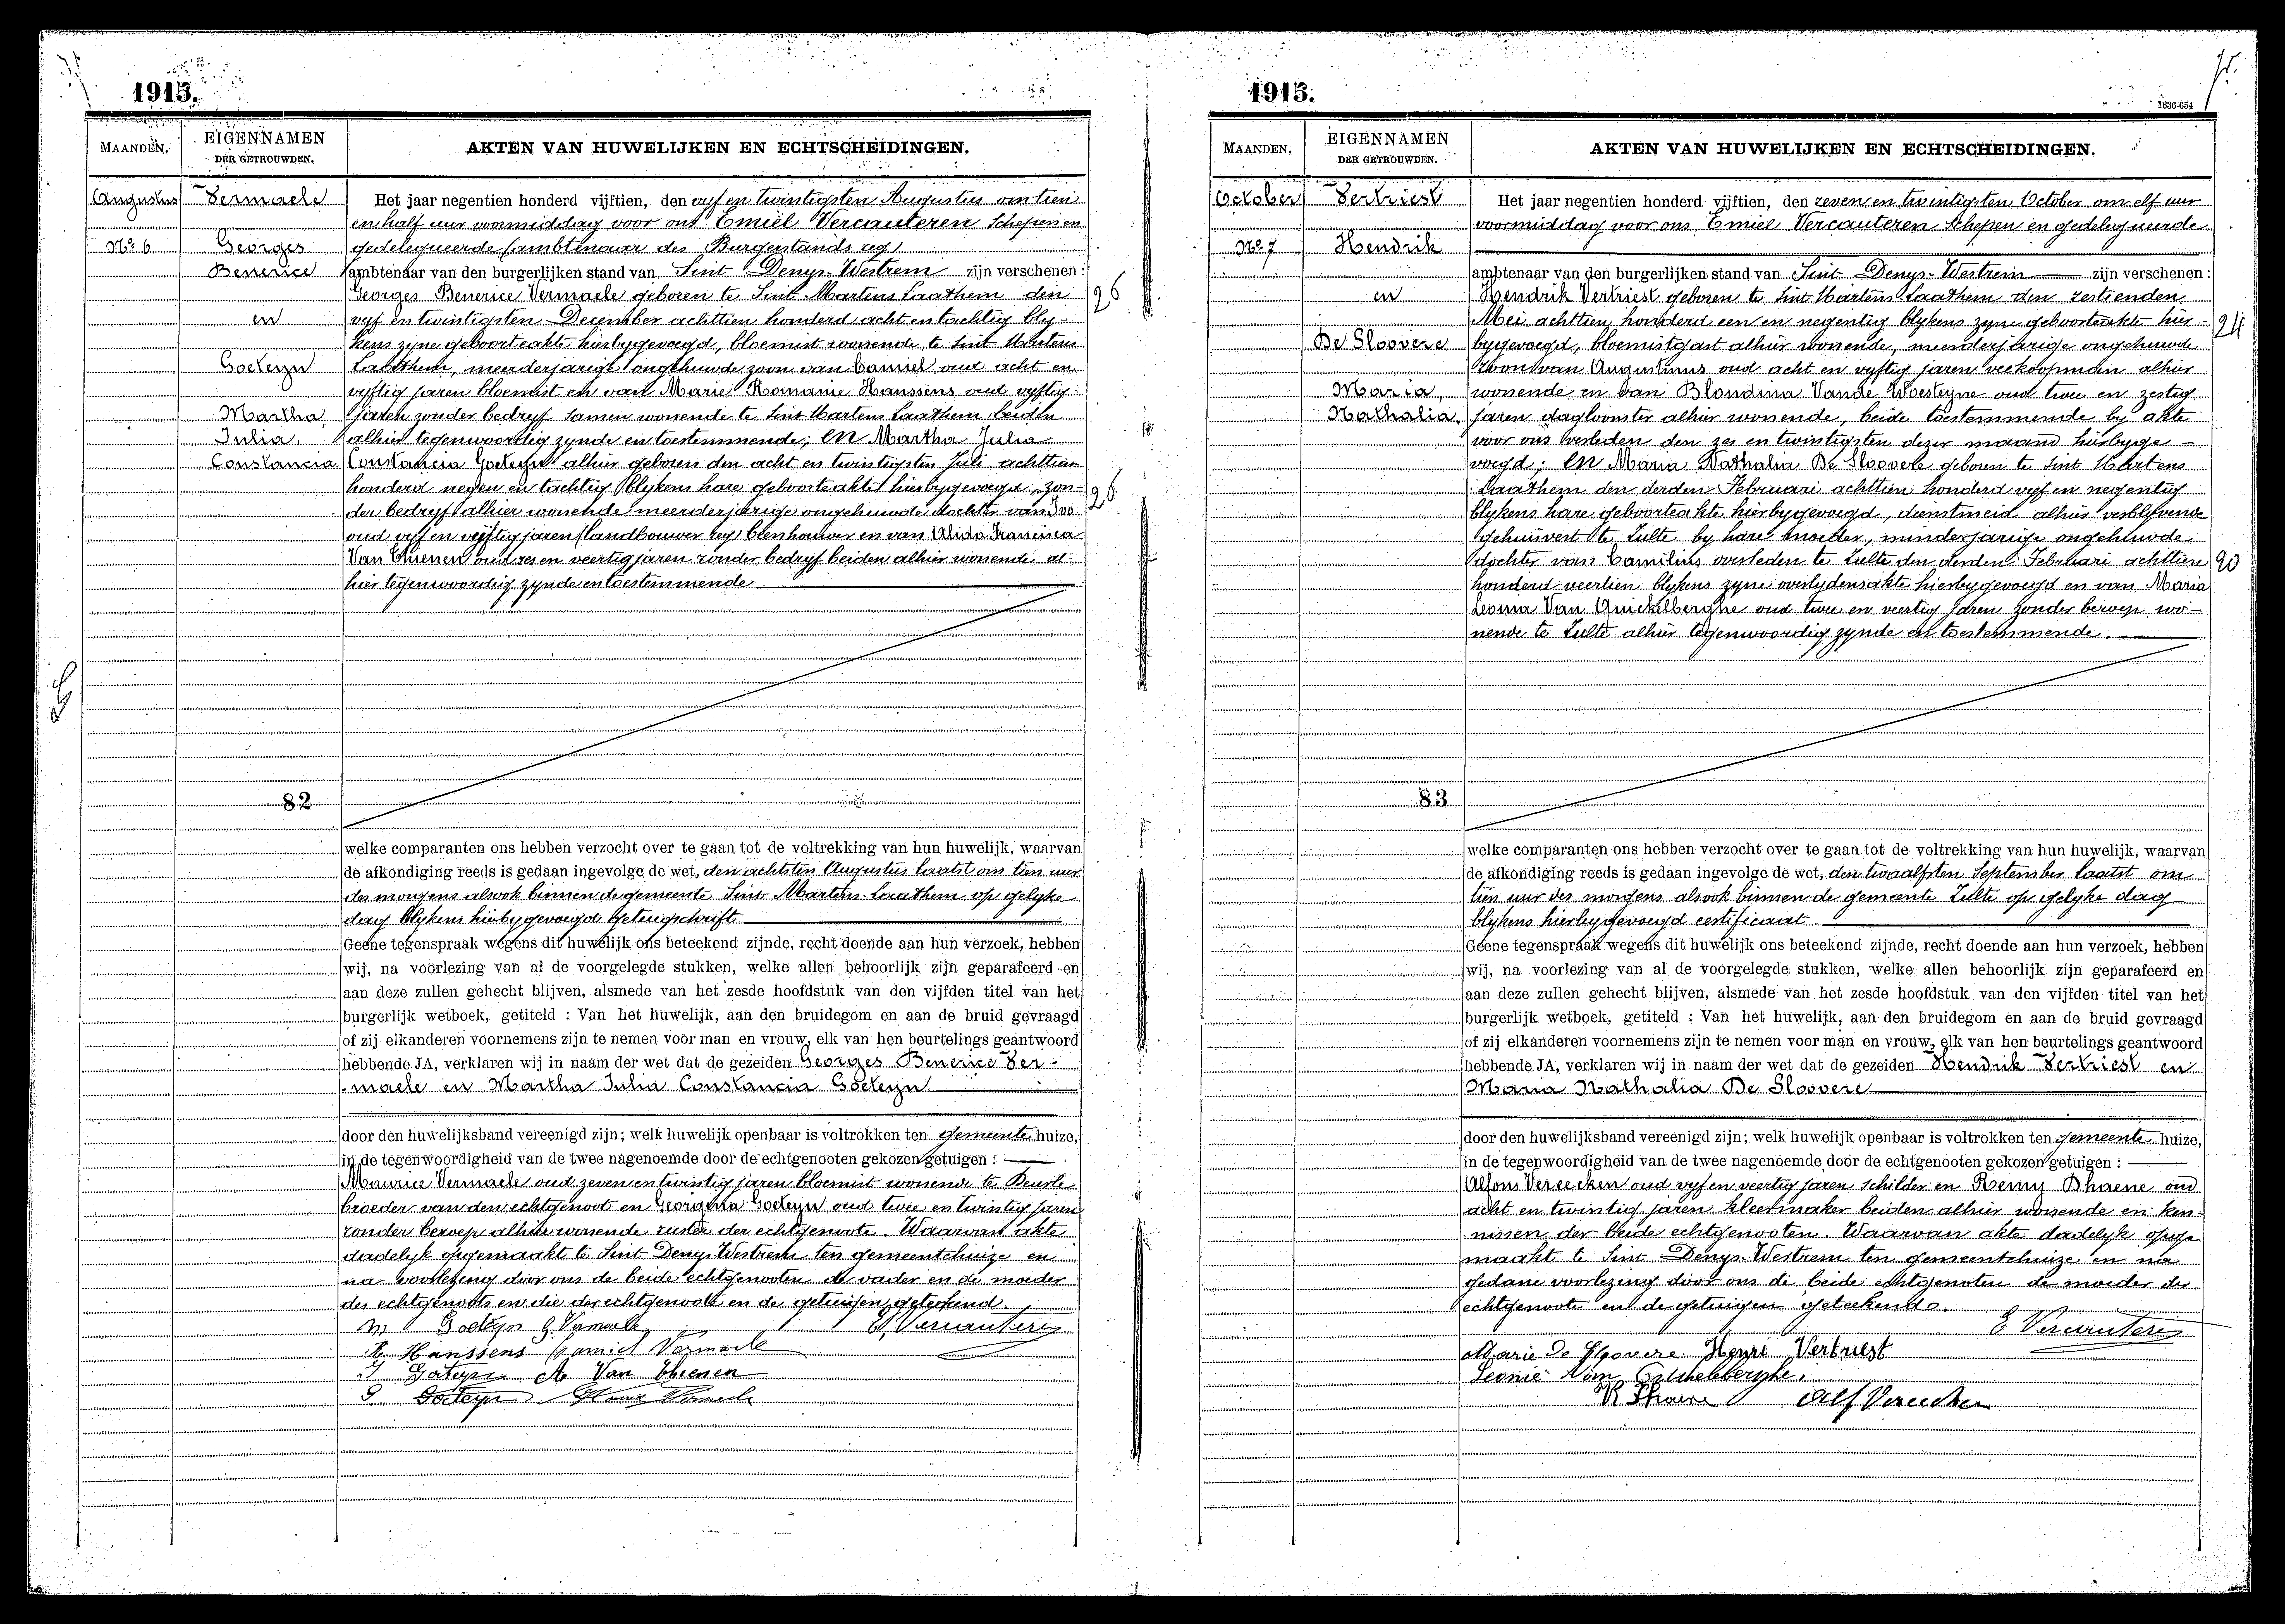 1915.
MAANDEN.
EIGENNAMEN
DER GETROUWDEN.
AKTEN VAN HUWELIJKEN EN ECHTSCHEIDINGEN.
Augustus
No 6
Vermaele
Georges
Benerice
en
Goeteyn
Martha,
Julia,
Constancia
Het jaar negentien honderd vijftien, den vyf en twintigsten Augustus om tien
en half uur voormiddag voor ons Emiel Vercauteren Schepen en
gedelegueerde (ambtenaar des Burgerstands reg)
ambtenaar van den burgerlijken stand van Sint Denys-Westrem zijn verschenen:
Georges Benerice Vermaele geboren te Sint Martens Laathem den
vyf en twintigsten December achttien honderd acht en tachtig bly-
kens zyne geboorteakte hierbygevoegd, bloemist wonende te Sint Martens
Laathem, meerderjarige ongehuwde zoon van Camiel oud acht en
vyftig jaren bloemist en van Marie Romanie Hanssens oud vyftig
jaren zonder bedryf samen wonende te Sint Martens Laathem beiden
alhier tegenwoordig zynde en toestemmende; en Martha Julia
Constancia Goeteyn alhier geboren den acht en twintigsten Juli achttien
honderd negen en tachtig blykens hare geboorteakte hierbygevoegd, zon-
der bedryf alhier wonende meerderjarige ongehuwde dochter van Ivo
oud vyf en vyftig jaren (landbouwer reg) blenhouwer en van Alida Francisca
Van Thienen oud zes en veertig jaren zonder bedryf beiden alhier wonende al-
hier tegenwoordig zynde en toestemmende
26
26
82
welke comparanten ons hebben verzocht over te gaan tot de voltrekking van hun huwelijk, waarvan
de afkondiging reeds is gedaan ingevolge de wet, den achtsten Augustus laatst om tien uur
des morgens alsook binnen de gemeente Sint Martens-Laathem op gelyke
dag blykens hierbygevoegd getuigschrift
Geene tegenspraak wegens dit huwelijk ons beteekend zijnde, recht doende aan hun verzoek, hebben
wij, na voorlezing van al de voorgelegde stukken, welke allen behoorlijk zijn geparafeerd en
aan deze zullen gehecht blijven, alsmede van het zesde hoofdstuk van den vijfden titel van het
burgerlijk wetboek, getiteld : Van het huwelijk, aan den bruidegom en aan de bruid gevraagd
of zij elkanderen voornemens zijn te nemen voor man en vrouw, elk van hen beurtelings geantwoord
hebbende JA, verklaren wij in naam der wet dat de gezeiden Georges Benerice Ver-
maele en Martha Julia Constancia Goeteyn
door den huwelijksband vereenigd zijn; welk huwelijk openbaar is voltrokken ten gemeente huize,
in de tegenwoordigheid van de twee nagenoemde door de echtgenooten gekozen getuigen :
Maurice Vermaele oud zeven en twintig jaren bloemist wonende te Deurle
broeder van den echtgenoot en Georgina Goeteyn oud twee en twintig jaren
zonder beroep alhier wonende zuster der echtgenoote. Waarvan akte
dadelyk opgemaakt te Sint Denys Westrem ten gemeentehuize en
na voorlezing door ons de beide echtgenooten de vader en de moeder
des echtgenoots en die der echtgenoote en de getuigen geteekend.
M Goeteyn G. Vermaele E. Vercauteren
R Hanssens Camiel Vermaele
I Goteyn A Van Thienen
G Goeteyn Vermaele
1915.
1636-654
MAANDEN.
EIGENNAMEN
DER GETROUWDEN.
AKTEN VAN HUWELIJKEN EN ECHTSCHEIDINGEN.
October
No 7
Vertriest
Hendrik
en
De Sloovere
Maria,
Nathalia.
Het jaar negentien honderd vijftien, den zeven en twintigsten October om elf uur
voormiddag voor ons Emiel Vercauteren Schepen en gedelegueerde
ambtenaar van den burgerlijken stand van Sint Denys-Westrem zijn verschenen:
Hendrik Vertriest geboren te Sint Martens Laathem den zestienden
Mei achttien honderd een en negentig blykens zyne geboorteakte hier-
bygevoegd, bloemistgast alhier wonende, meerderjarige ongehuwde
zoon van Augustinus oud acht en vyftig jaren veekoopman alhier
wonende en van Blondina Vande Woesteyne oud twee en zestig
jaren dagloonster alhier wonende, beide toestemmende by akte
voor ons verleden den zes en twintigsten dezer maand hierbyge-
voegd; en Maria Nathalia De Sloovere geboren te Sint Martens
Laathem den derden Februari achttien honderd vyf en negentig
blykens hare geboorteakte hierbygevoegd, dienstmeid alhier verblyvende
gehuisvest te Zulte by hare moeder, minderjarige ongehuwde
dochter van Camilius overleden te Zulte den derden Februari achttien
honderd veertien blykens zyne overlydensakte hierbygevoegd en van Maria
Leonia Van Quickelberghe oud twee en veertig jaren zonder beroep wo-
nende te Zulte alhier tegenwoordig zynde en toestemmende.
24
90
83
welke comparanten ons hebben verzocht over te gaan tot de voltrekking van hun huwelijk, waarvan
de afkondiging reeds is gedaan ingevolge de wet, den twaalfsten September laatst om
tien uur des morgens alsook binnen de gemeente Zulte op gelyke dag
blykens hierbygevoegd certificaat
Geene tegenspraak wegens dit huwelijk ons beteekend zijnde, recht doende aan hun verzoek, hebben
wij, na voorlezing van al de voorgelegde stukken, welke allen behoorlijk zijn geparafeerd en
aan deze zullen gehecht blijven, alsmede van het zesde hoofdstuk van den vijfden titel van het
burgerlijk wetboek, getiteld : Van het huwelijk, aan den bruidegom en aan de bruid gevraagd
of zij elkanderen voornemens zijn te nemen voor man en vrouw, elk van hen beurtelings geantwoord
hebbende JA, verklaren wij in naam der wet dat de gezeiden Hendrik Vertriest en
Maria Nathalia De Sloovere
door den huwelijksband vereenigd zijn; welk huwelijk openbaar is voltrokken ten gemeente huize,
in de tegenwoordigheid van de twee nagenoemde door de echtgenooten gekozen getuigen :
Alfons Vereecken oud vyf en veertig jaren schilder en Remy Dhaene oud
acht en twintig jaren kleermaker beiden alhier wonende en ken-
nissen der beide echtgenooten. Waarvan akte dadelyk opge-
maakt te Sint Denys-Westrem ten gemeentehuize en na
gedane voorlezing door ons de beide echtgenoten de moeder der
echtgenoote en de getuigen geteekend.
E Vercauteren
Marie De Sloovere Henri Vertriest
Leonie Van
R Dhaene Alf Vereecken